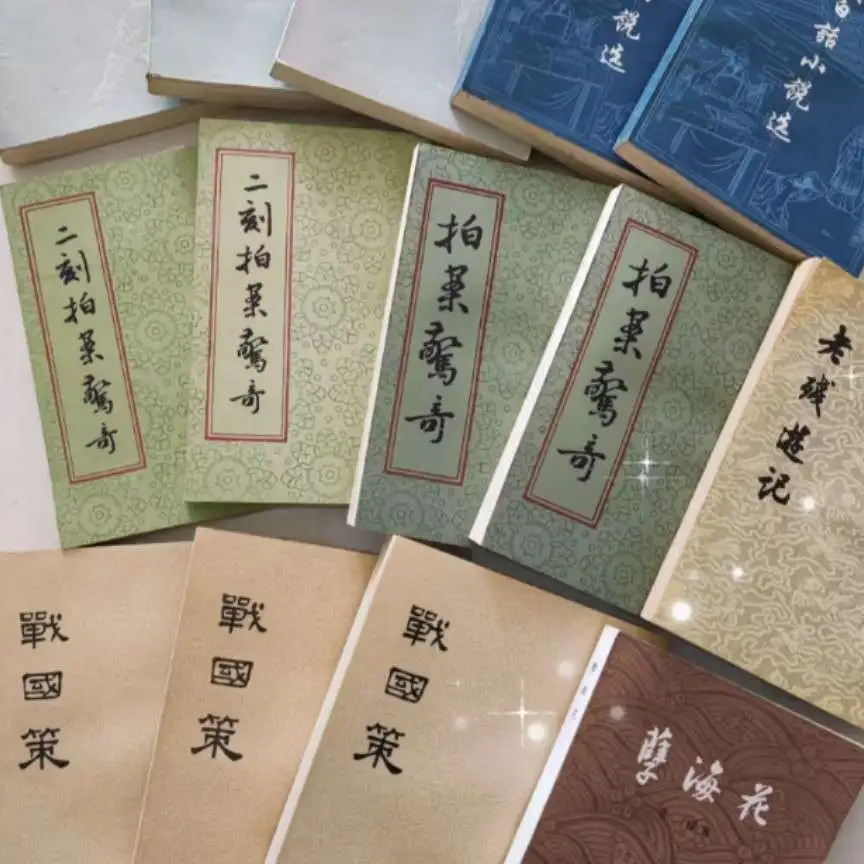 说选
白话小说选
二刻拍案驚奇
二刻拍案驚奇
拍案驚奇
拍案驚奇
老残遊记
戰國策
戰國策
戰國策
孽海花
孽海花